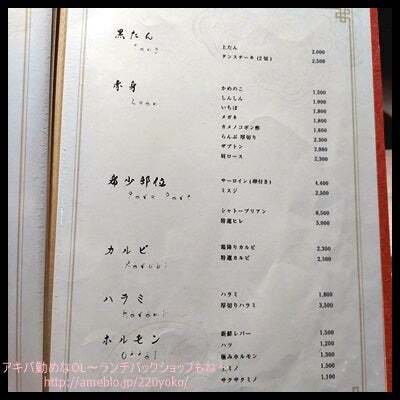 黒たん
上たん 2,000
タンステーキ (2切) 2,500
赤身
かめのこ 1,500
しんしん 1,900
いちぼ 1,900
メガネ
カメノコポン酢
らんぷ 厚切り 2,900
ザブトン 2,980
肩ロース 2,300
希少部位
サーロイン (卵付き) 4,400
ミスジ 2,500
シャトーブリアン 6,500
特選ヒレ 5,000
カルビ
霜降りカルビ 2,300
特選カルビ 2,500
ハラミ
ハラミ 1,800
厚切りハラミ 3,500
ホルモン
新鮮レバー 1,500
ハツ 1,200
極みホルモン 1,500
ミノ 1,500
サクサクミノ 1,100
アキバ勤めなOL～ランチパックショップもね～
http://ameblo.jp/220yoko/